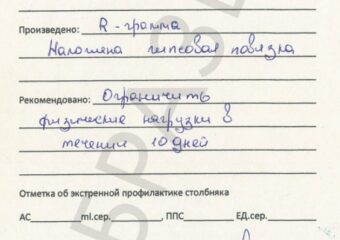 Произведено: R-грамма
Наложена гипсовая повязка
Рекомендовано: Ограничить
физические нагрузки в
течении 10 дней
Отметка об экстренной профилактике столбняка
АС________ml.сер.________, ППС________ЕД.сер.________